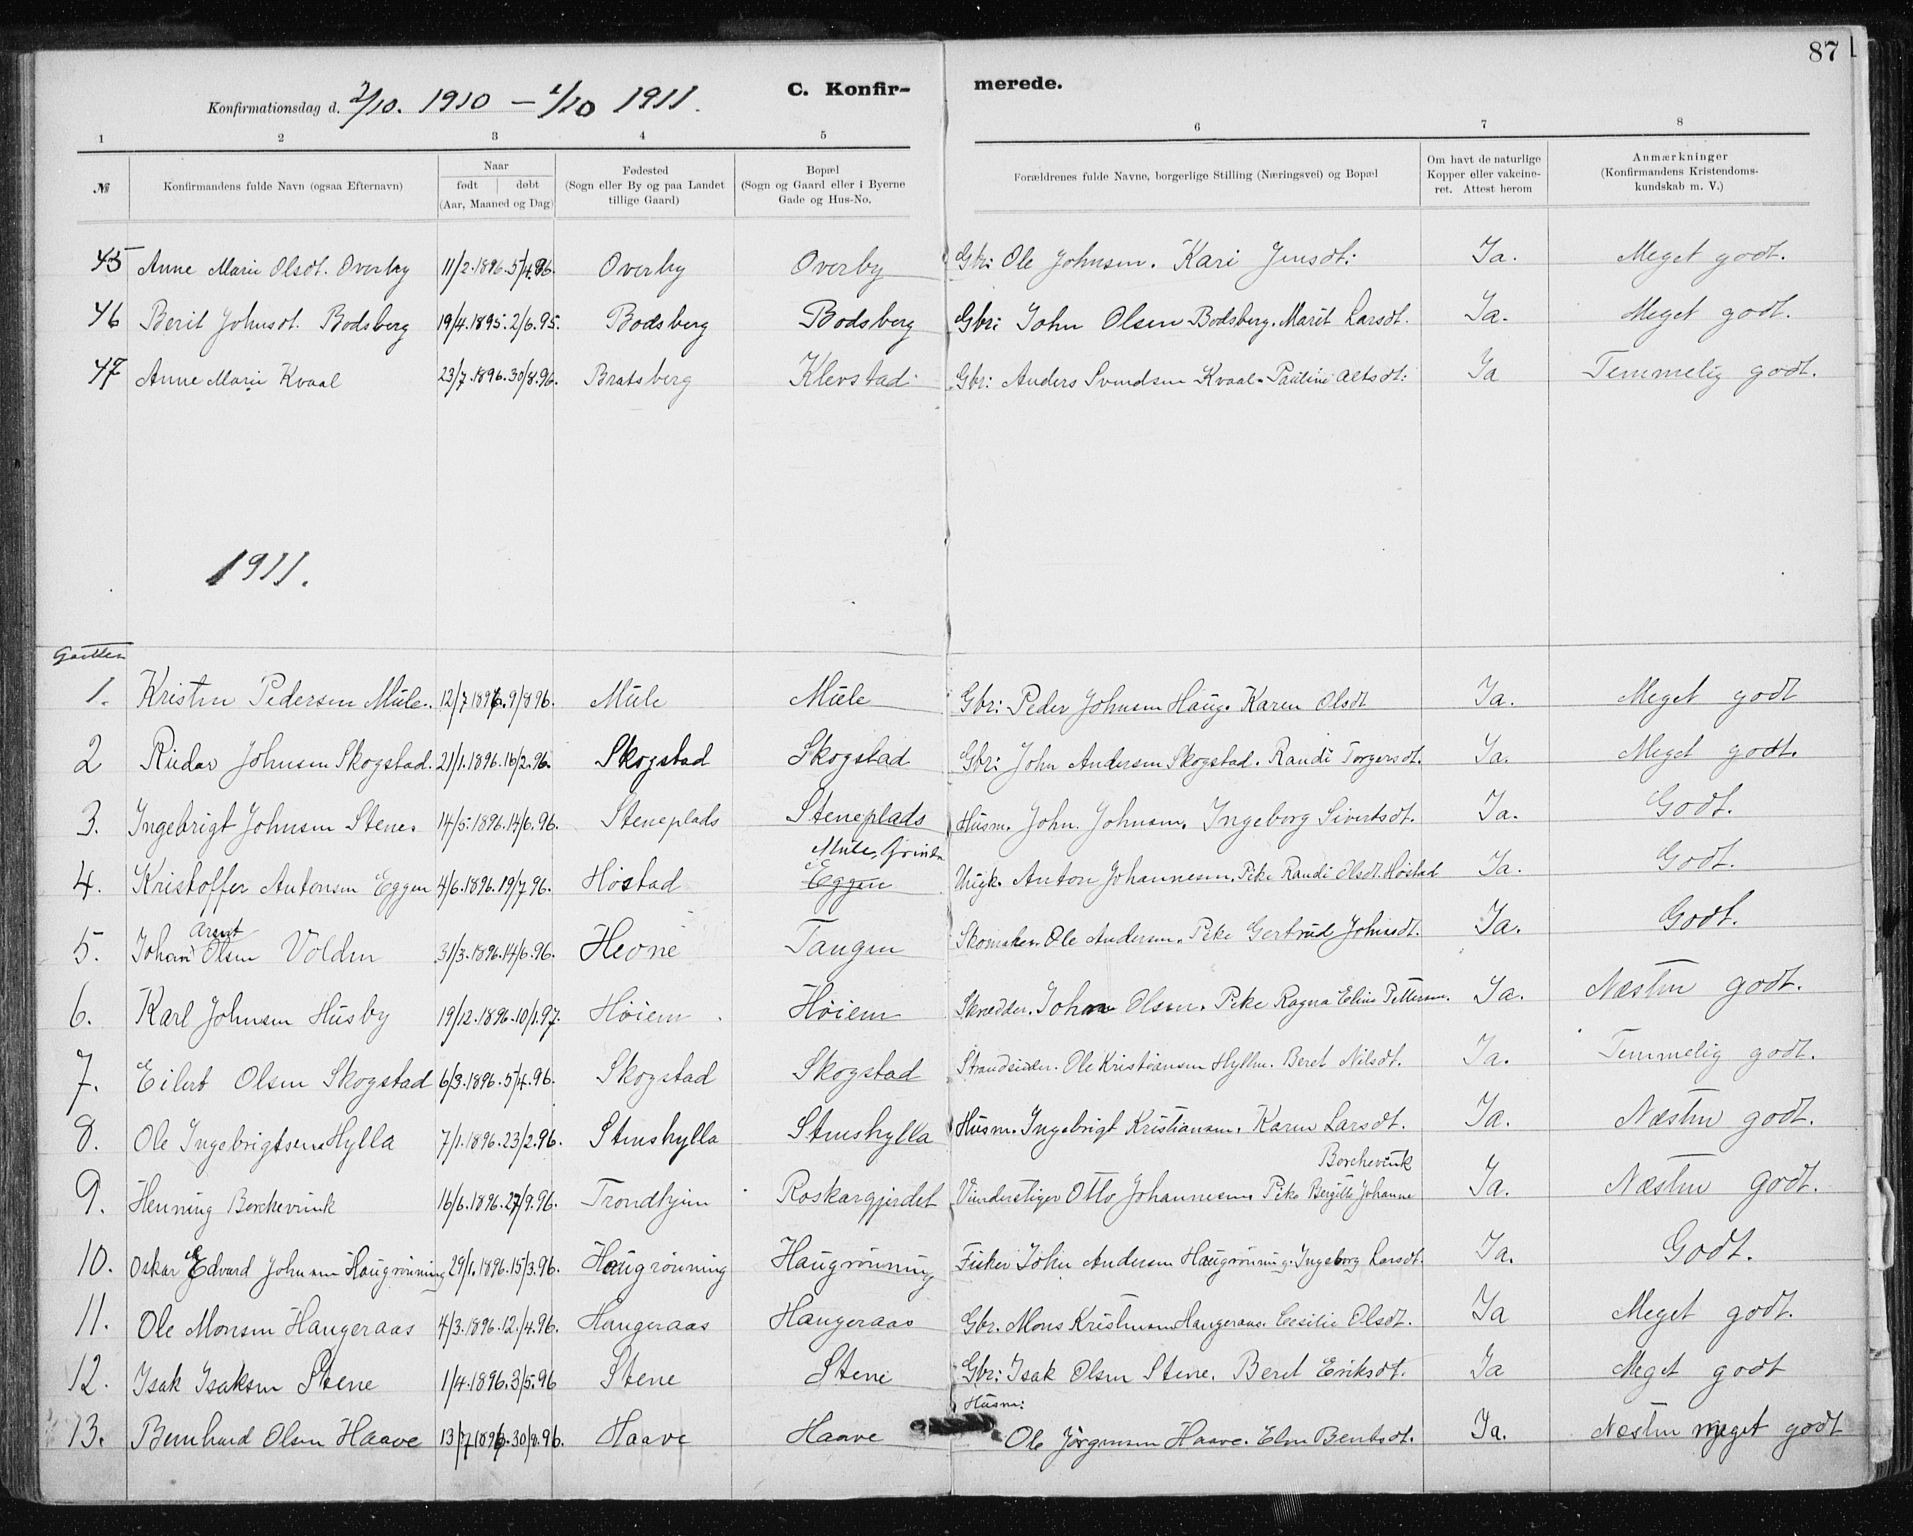 87
Konfirmationsdag d. 2/10. 1910 – 1/10 1911.
C. Konfirmerede.
1 2 3 4 5 6 7 8
№ | Konfirmandens fulde Navn (ogsaa Efternavn) | Naar født | døbt (Aar, Maaned og Dag) | Fødested (Sogn eller By og paa Landet tillige Gaard) | Bopæl (Sogn og Gaard eller i Byerne Gade og Hus-No. | Forældrenes fulde Navne, borgerlige Stilling (Næringsvei) og Bopæl | Om havt de naturlige Kopper eller vakcineret. Attest herom | Anmærkninger (Konfirmandens Kristendomskundskab m. V.)
45 Anne Marie Olsdt. Overby 11/2.1896. 5/4.96. Overby Overby Gbr: Ole Johnsen. Kari Jensdt: Ja. Meget godt.
46 Berit Johnsdt. Bodsberg 19/4.1895. 2/6.95. Bodsberg Bodsberg Gbr: John Olsen Bodsberg. Marit Larsdt. Ja. Meget godt.
47 Anne Marie Kvaal 23/7.1896. 30/8.96. Bratsberg Klevstad Gbr: Anders Svendsen Kvaal. Pauline Altsdt: Ja Temmelig godt.
1911.
Gutter
1. Kristen Pedersen Mule. 12/7 1896. 9/8 96. Mule Mule Gbr: Peder Johnsen Haug. Karen Olsdt Ja. Meget godt
2 Riedar Johnsen Skogstad. 21/1.1896. 16/2.96. Skogstad Skogstad Gbr: John Andersen Skogstad. Randi Torgersdt. Ja. Meget godt.
3. Ingebrigt Johnsen Stene. 14/5.1896. 14/6.96. Steneplads Steneplads Husm. John Johnsen. Ingeborg Sivertsdt. Ja. Godt.
Mule,
4. Kristoffer Antonsen Eggen 4/6.1896. 19/7.96. Høstad Eggen Ungk. Anton Johannesen. Pike Randi Olsdt. Høstad Ja. Godt.
Arent
5. Johan Olsen Volden 31/3.1896. 14/6.96. Hevne Tangen Skomaker. Ole Andersen. Pike Gertrud Johnsdt. Ja. Godt.
6. Karl Johnsen Husby 19/12.1896. 10/1.97. Høiem Høiem Skrædder. John Olsen. Pike Ragna Eline Pettersen. Ja. Næsten godt.
7. Eilert Olsen Skogstad 6/3.1896. 5/4.96. Skogstad Skogstad Strandsidder. Ole Kristiansen Hyllen. Beret Nilsdt. Ja. Temmelig godt.
8. Ole Ingebrigtsen Hylla 7/1.1896. 23/2.96. Stenshylla Stenshylla Husm. Ingebrigt Kristiansen. Karen Larsdt. Ja. Næsten godt.
Borchevink
9. Henning Borchevink 16/6.1896. 27/9.96. Trondhjem Roskargjerdet Otto Johannesen. Pike Bergitte Johanne Ja. Næsten godt.
10. Oskar Edvard Johnsen Haugrønning 29/1.1896. 15/3.96. Haugrønning Haugrønning Fisker John Andersen Haugrønning. Ingeborg Larsdt. Ja. Godt.
11. Ole Monsen Haugeraas 4/3.1896. 12/4.96. Haugeraas Haugeraas Gbr. Mons Kristensen Haugeraas. Cesilie Olsdt. Ja Meget godt.
12. Isak Isaksen Stene 1/4.1896. 3/5.96 Stene Stene Gbr: Isak Olsen Stene. Beret Eriksdt. Ja Meget godt
Husm:
13. Bernhard Olsen Haave 13/7 1896. 30/8.96. Haave Haave Ole Jørgensen Haave. Elen Bentsdt. Ja. Næsten meget godt